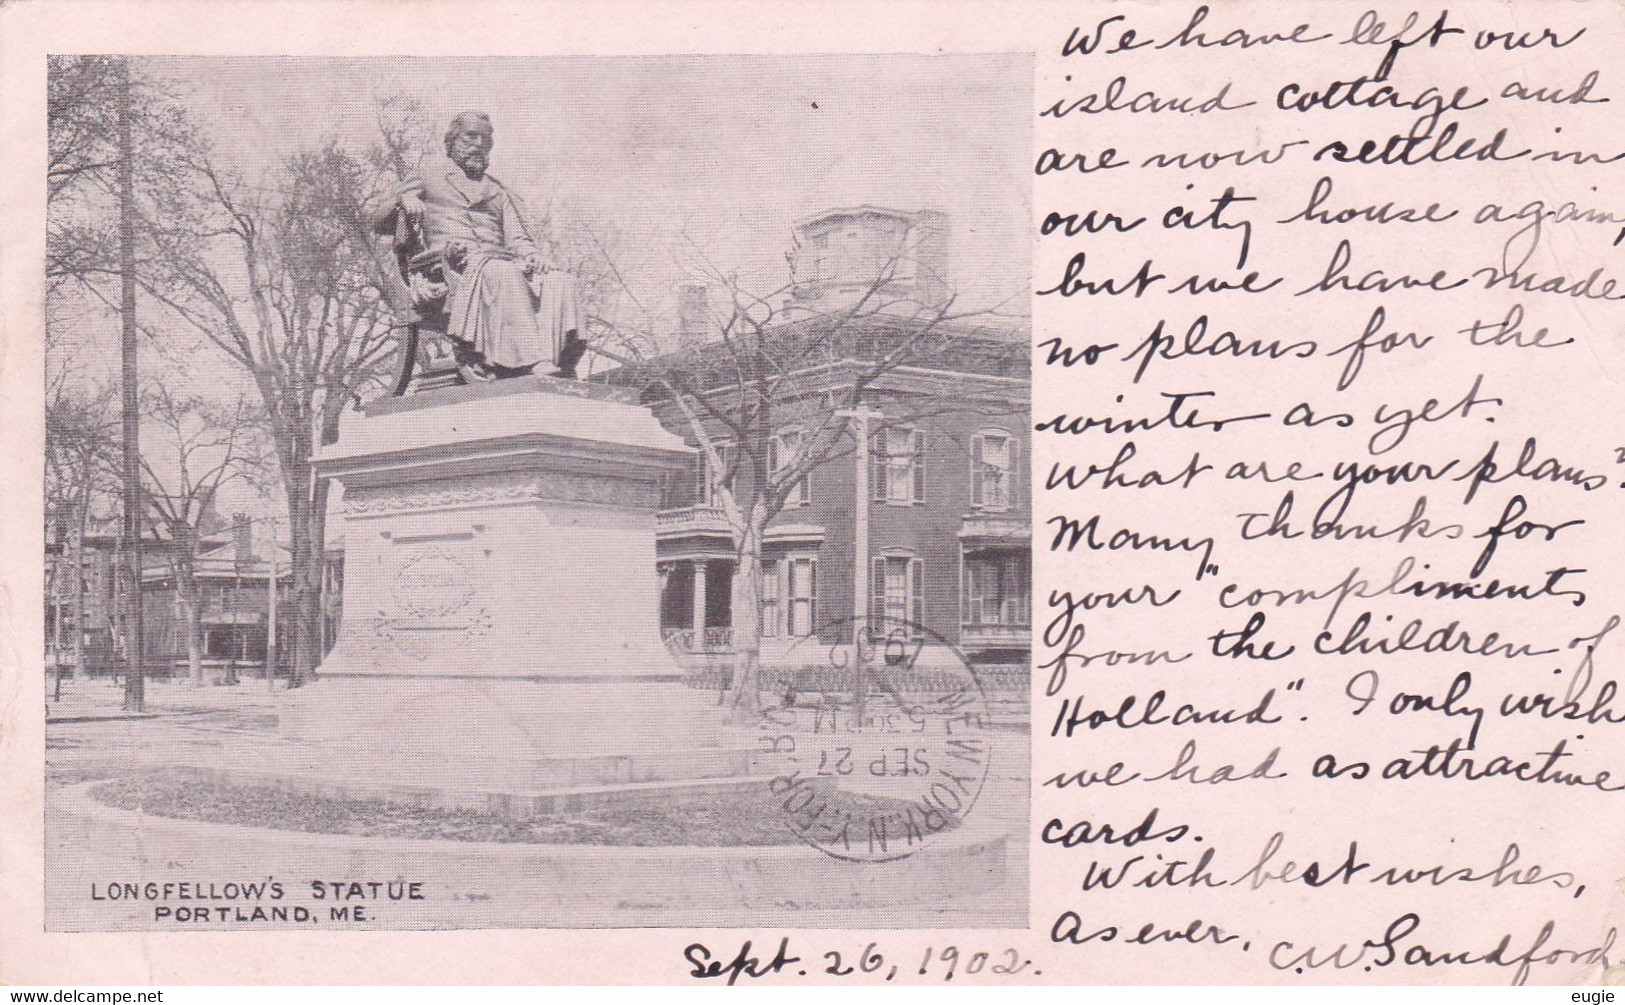 We have left our
island cottage and
are now settled in
our city house again,
but we have made
no plans for the
winter as yet.
What are your plans?
Many thanks for
your "compliments
from the children of
Holland". I only wish
we had as attractive
cards.
With best wishes,
As ever,
C.W. Sandford
Sept. 26, 1902.
LONGFELLOW'S STATUE
PORTLAND, ME.
NEW YORK, N.Y.
SEP 27
5 30 PM
1902
eugie